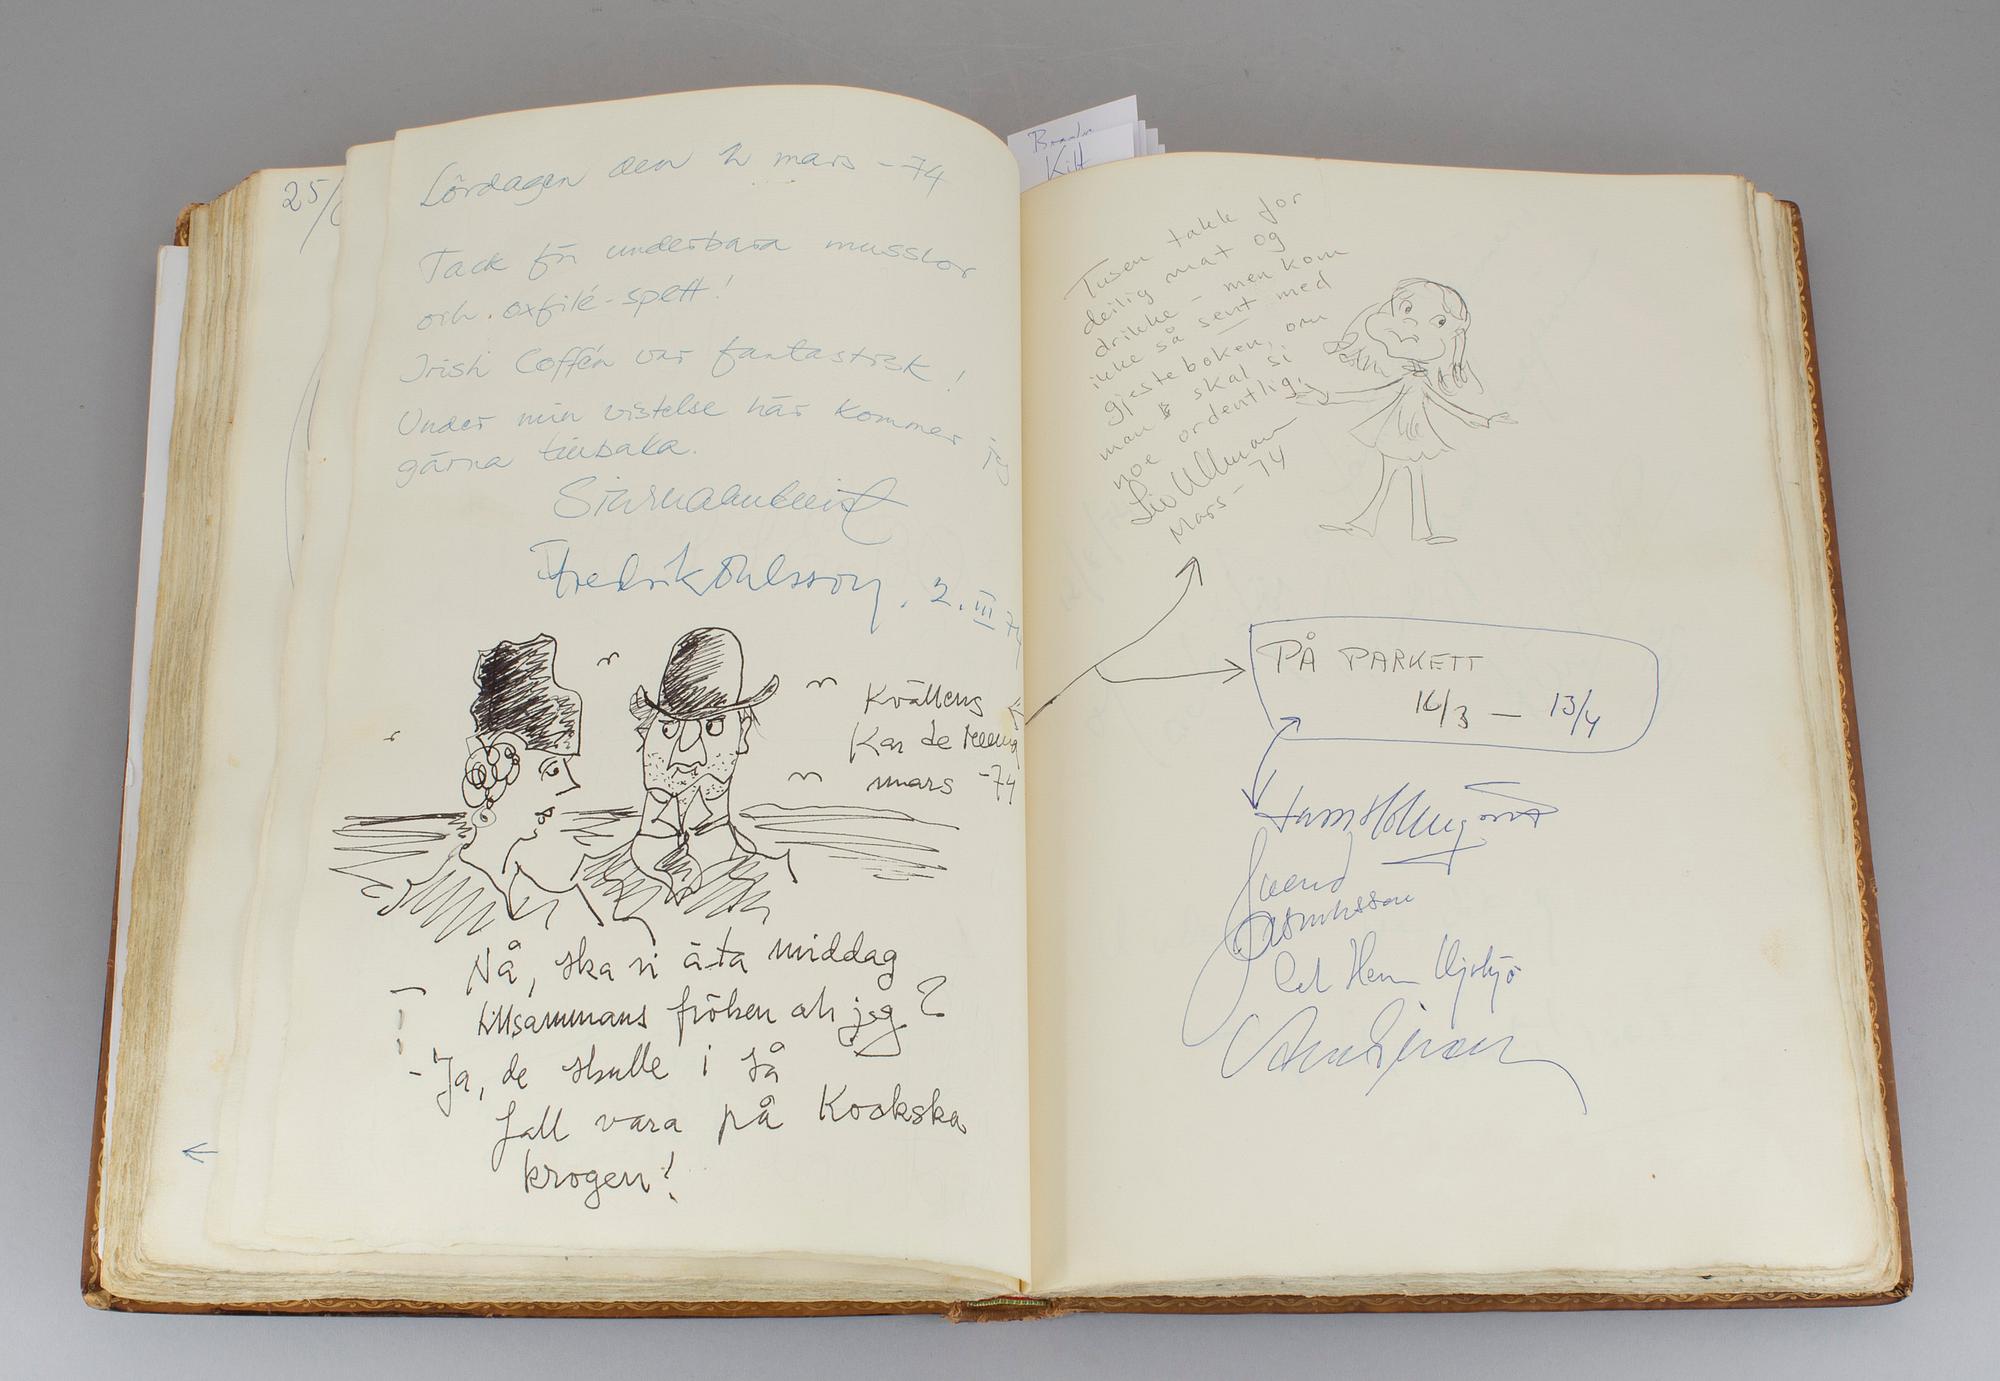 25/
Lördagen den 2 mars -74
Tack för underbara musslor
och oxfilé-spett!
Irish Coffén var fantastisk!
Under min vistelse här kommer jag
gärna tillbaka.
Fredrik Ohlsson, 2. III 74
Kvällens
Kar de Mumma
mars -74
Nå, ska vi äta middag
tillsammans fröken och jag?
- Ja, de skulle i så
fall vara på Kockska
krogen!
Kitt
Tusen takk for
deilig mat og
drikke - men kom
ikke så sent med
gjesteboken, om
man skal si
noe ordentlig.
Liv Ullmann
Mars - 74
PÅ PARKETT
16/3 — 13/4
Svend